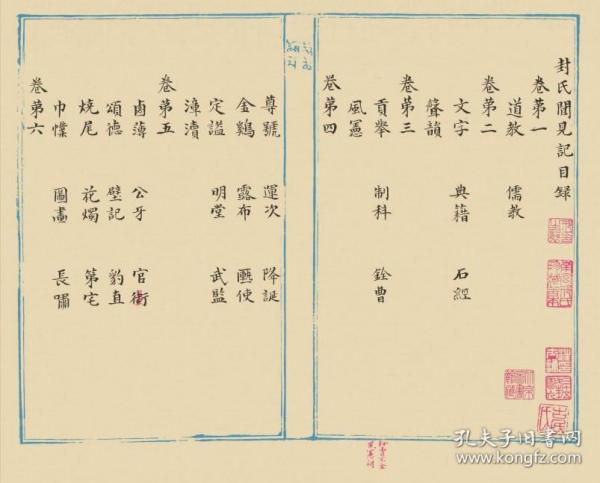 封氏聞見記目録
卷第一
道教 儒教
卷第二
文字 典籍 石經
聲韻
卷第三
貢舉 制科 銓曹
風憲
卷第四
尊號 運次 降誕
金鷄 露布 匭使
定謚 明堂 武監
漳瀆
卷第五
鹵薄 公牙 官銜
頌德 壁記 豹直
燒尾 花燭 第宅
巾幞 圖畫 長嘯
卷第六
孔夫子旧書网
www.kongfz.com